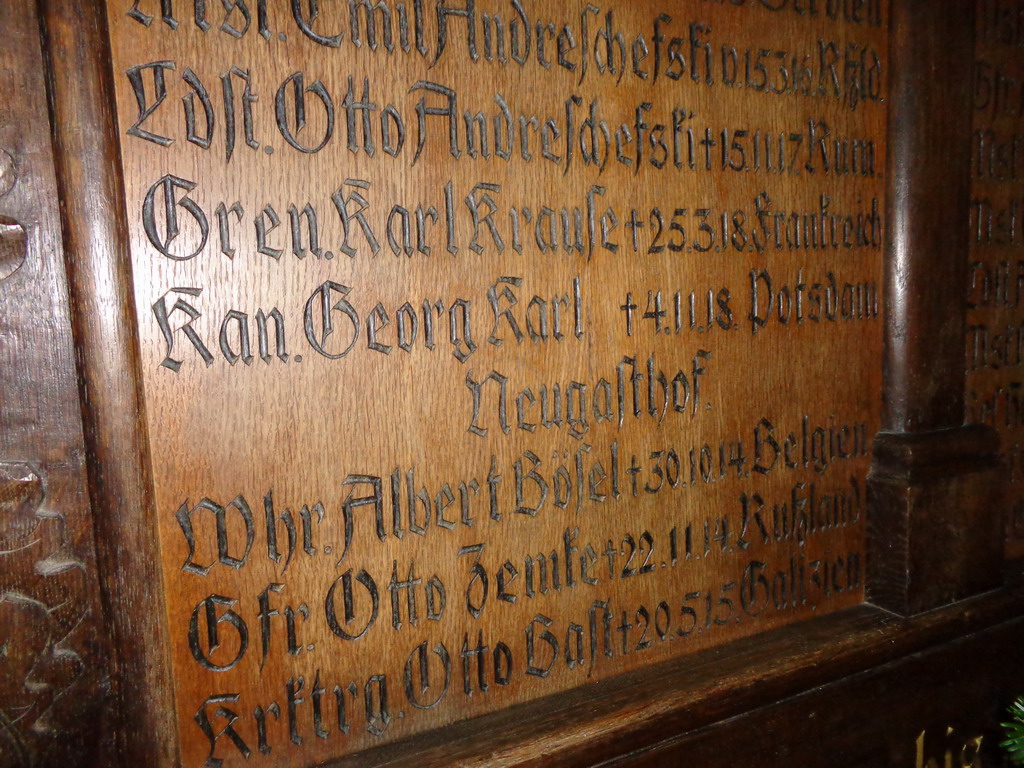 Serbien
Mskt. Emil Andreschefski v. 15.3.16. Rßld.
Ldst. Otto Andreschefski † 15.11.17. Rum.
Gren. Karl Krause † 25.3.18. Frankreich
Kan. Georg Karl † 4.11.18. Potsdam
Neugasthof.
Whr. Albert Bösel † 30.10.14. Belgien
Gfr. Otto Zemke † 22.11.14. Rußland
Krktrg. Otto Gast † 20.5.15. Galizien